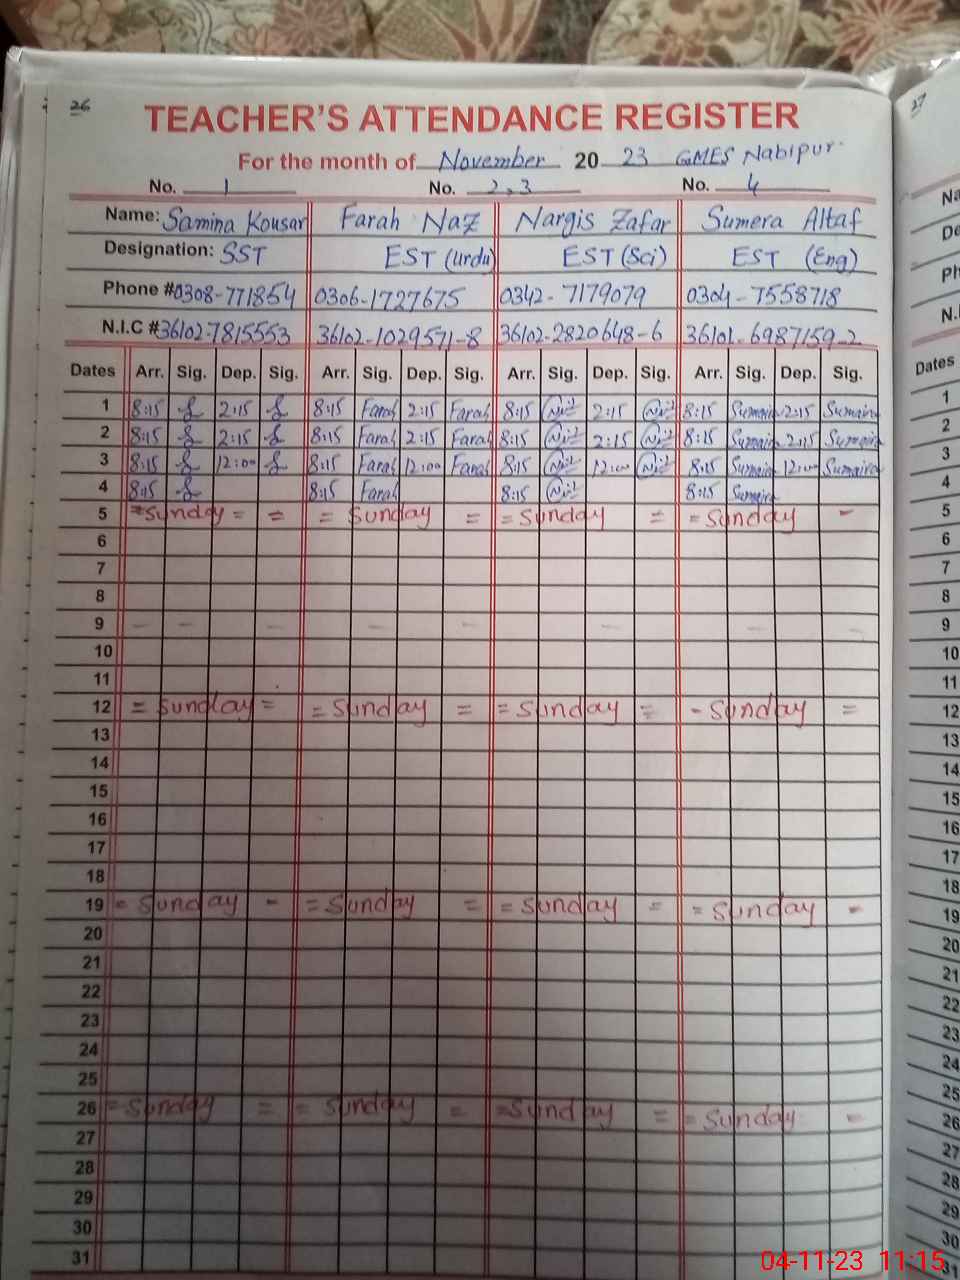 26
TEACHER'S ATTENDANCE REGISTER
For the month of November 20 23 GMES Nabipur
No. 1 No. 2,3 No. 4
Name: Samina Kousar Farah Naz Nargis Zafar Sumera Altaf
Designation: SST EST (Urdu) EST (Sci) EST (Eng)
Phone # 0308-771854 0306-1727675 0342-7179079 0304-7558718
N.I.C # 36102-7815553 36102-1029571-8 36102-2820648-6 36101-6987159-2
Dates Arr. Sig. Dep. Sig. Arr. Sig. Dep. Sig. Arr. Sig. Dep. Sig. Arr. Sig. Dep. Sig.
1 8:15 2:15 8:15 Farah 2:15 Farah 8:15 2:15 8:15 Sumaira 2:15 Sumaira
2 8:15 2:15 8:15 Farah 2:15 Farah 8:15 2:15 8:15 Sumaira 2:15 Sumaira
3 8:15 12:00 8:15 Farah 12:00 Farah 8:15 12:00 8:15 Sumaira 12:00 Sumaira
4 8:15 8:15 Farah 8:15 8:15 Sumaira
5 = Sunday = = = Sunday = = Sunday = = Sunday -
6
7
8
9
10
11
12 = Sunday = = Sunday = = Sunday = - Sunday =
13
14
15
16
17
18
19 = Sunday - = Sunday = = Sunday = = Sunday -
20
21
22
23
24
25
26 = Sunday = = Sunday = = Sunday = = Sunday =
27
28
29
30
31
27
Na
De
Ph
N.I
Dates
1
2
3
4
5
6
7
8
9
10
11
12
13
14
15
16
17
18
19
20
21
22
23
24
25
26
27
28
29
30
31
04-11-23 11:15